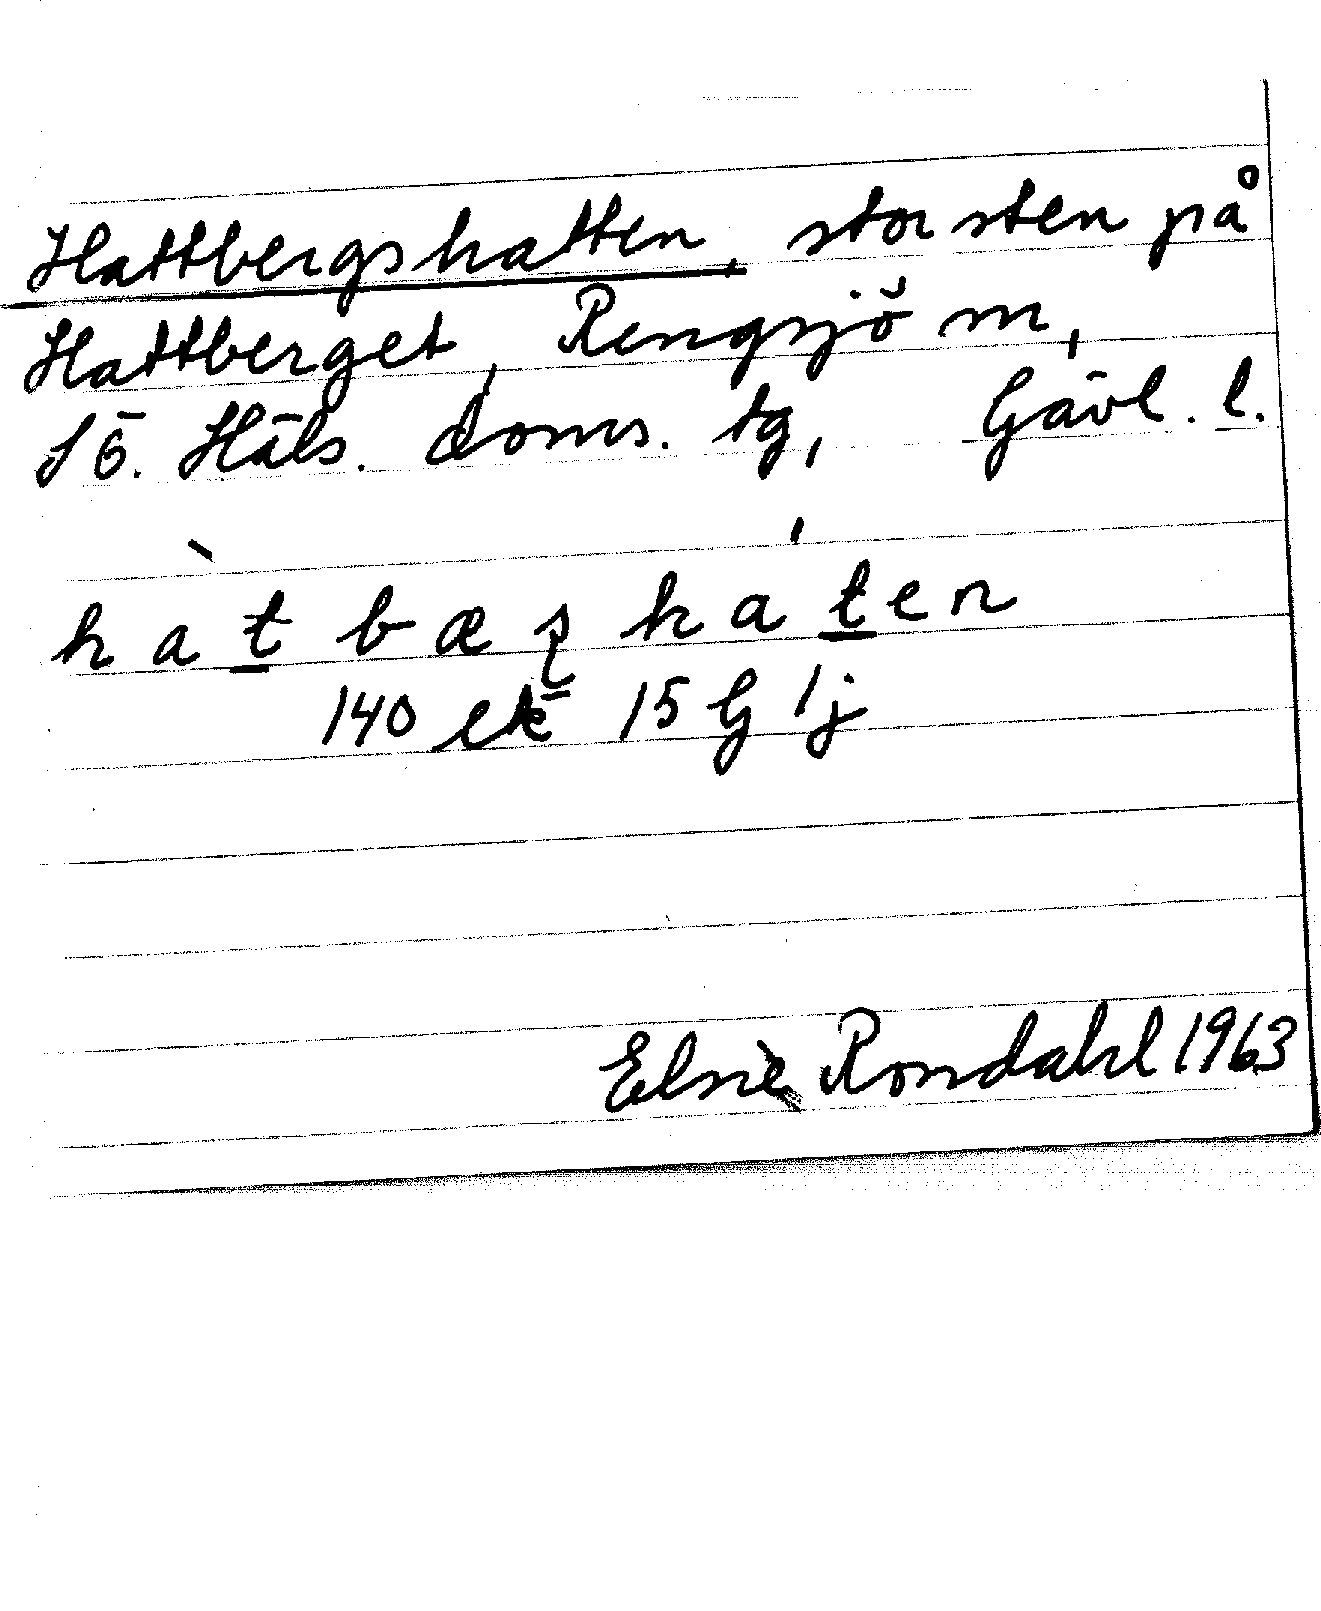 Hattbergshatten, stor sten på
Hattberget, Rengsjö sn,
Sö. Häls. doms. tg, Gävl. l.
hat bæʂhaten
140 ek 15 G 1j
Elsie Rondahl 1963